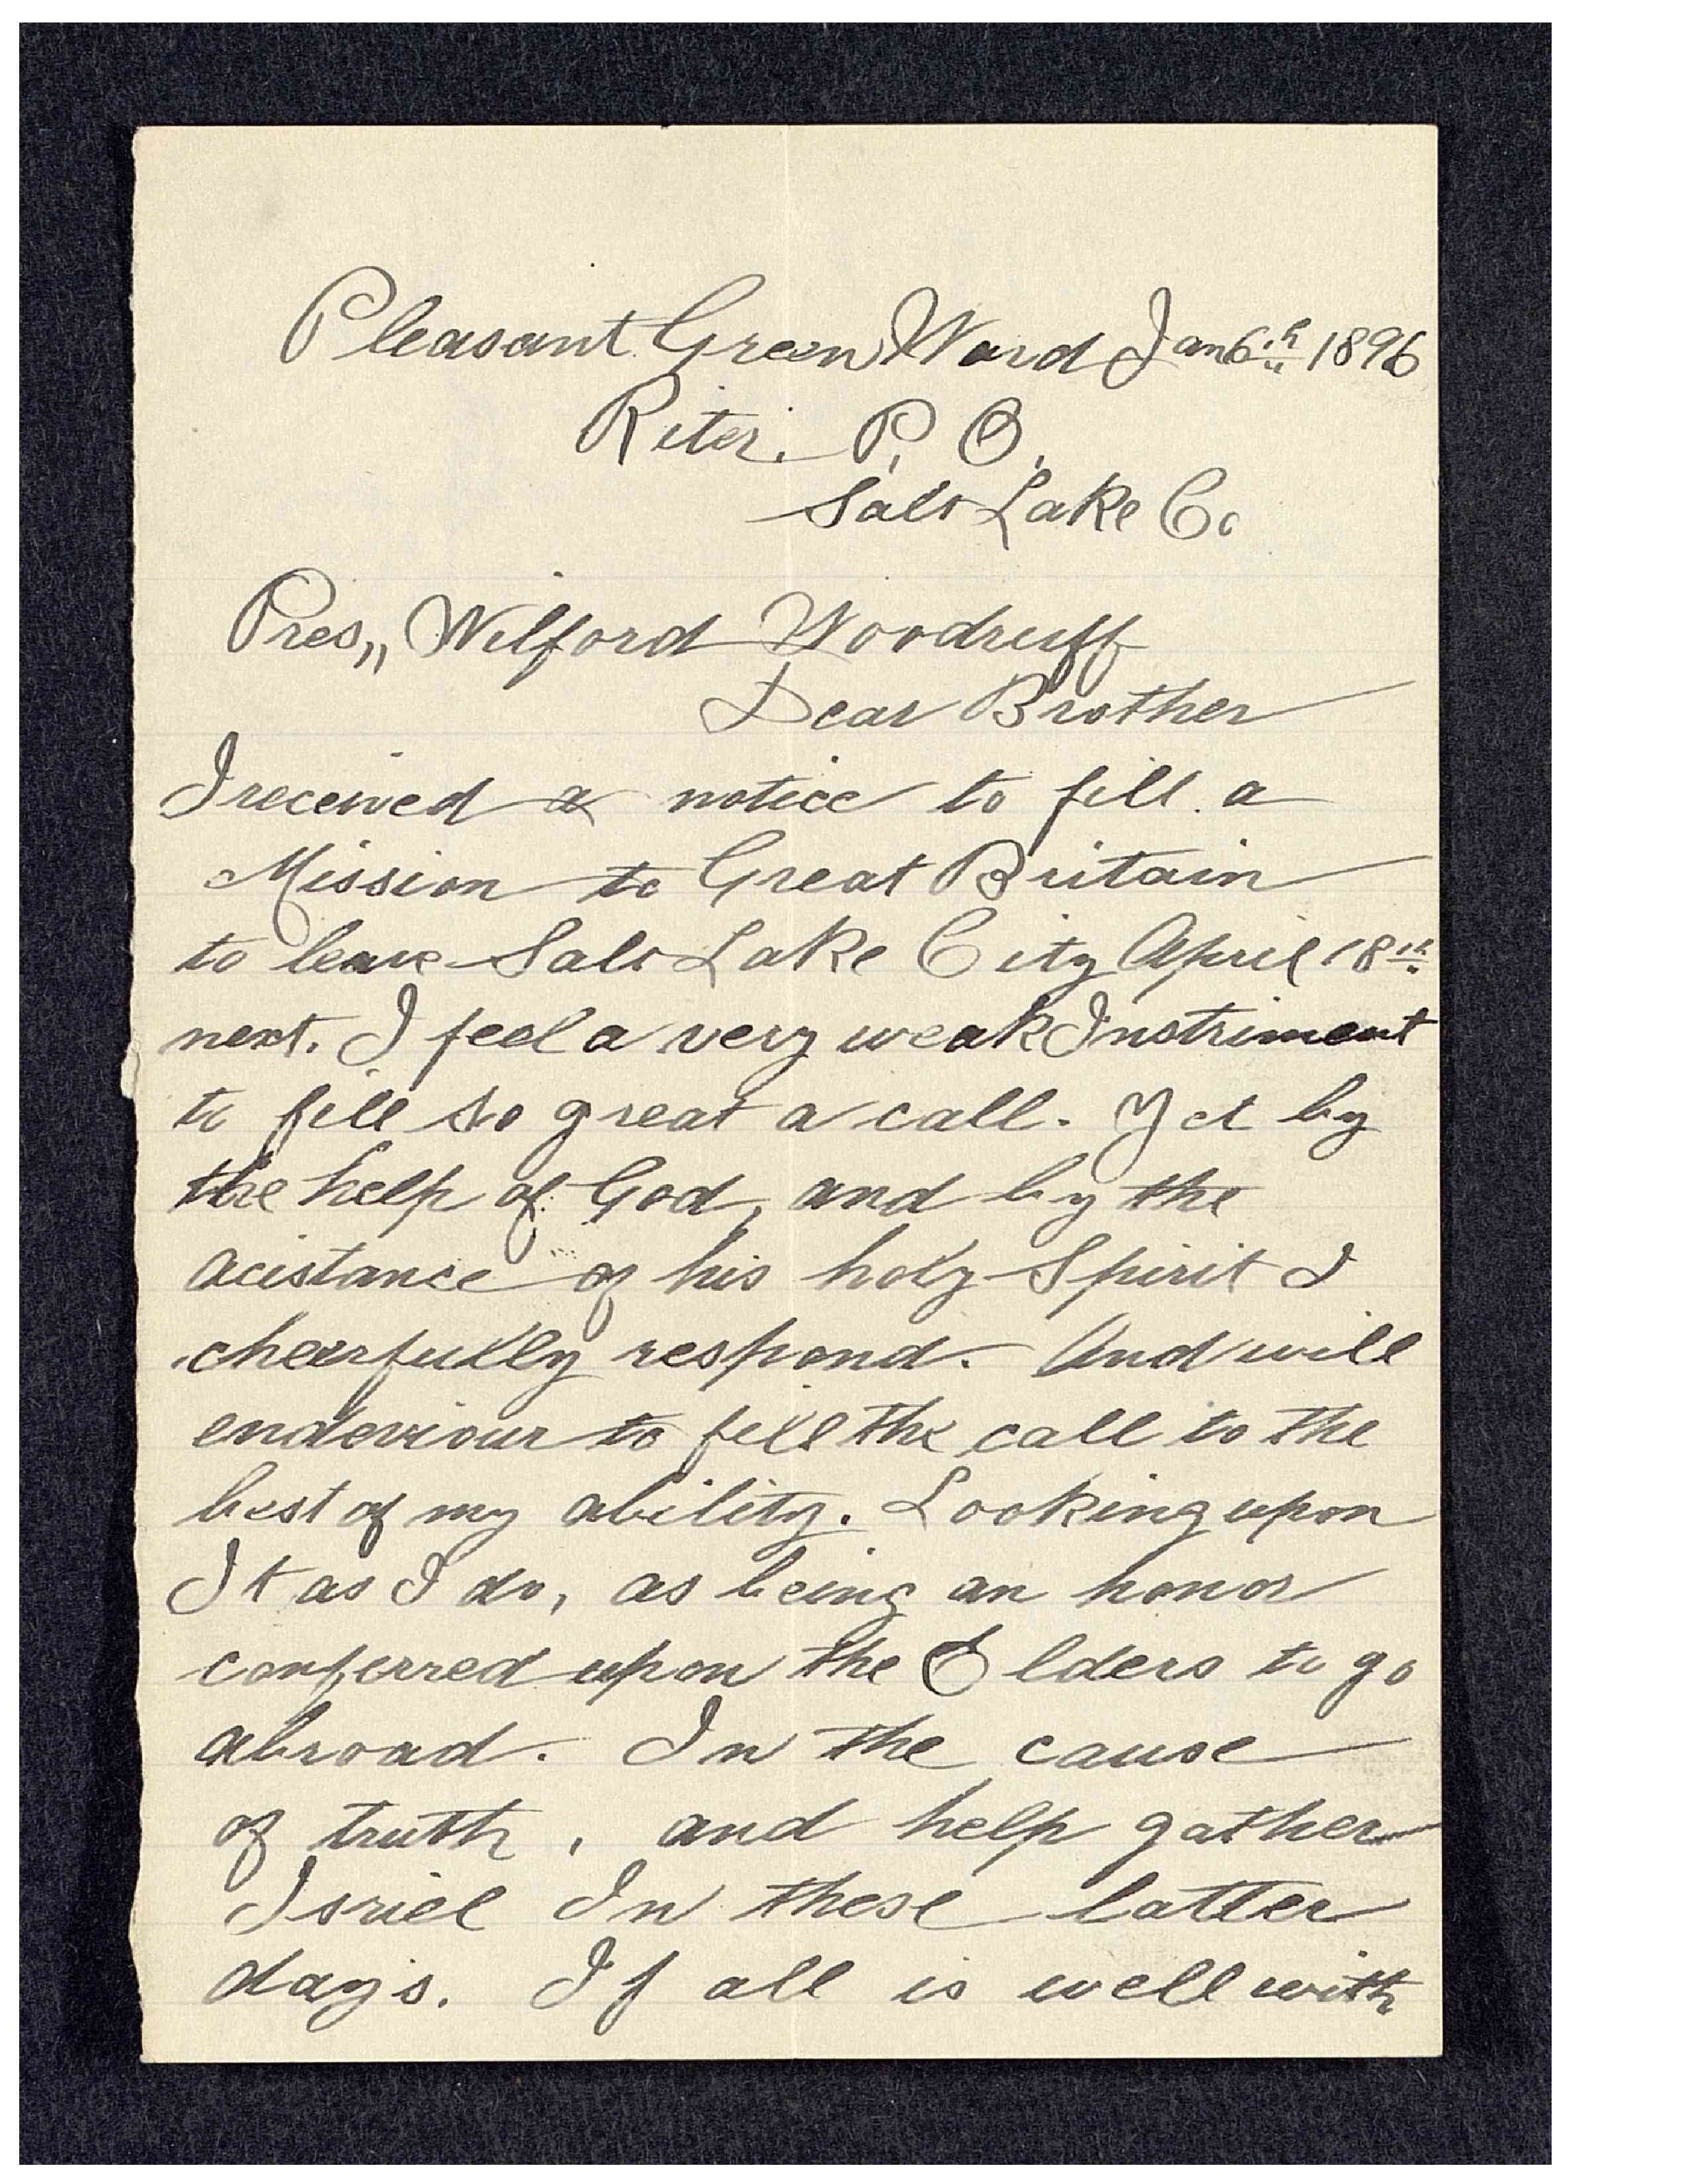 Pleasant Green Ward Jan 6th 1896
Riter. P. O.
Salt Lake Co
Pres,, Wilford Woodruff
Dear Brother
I received a notice to fill a
Mission to Great Britain
to leave Salt Lake City April 18th
next. I feel a very weak Instriment
to fill so great a call. Yet by
the help of God, and by the
acistance of his holy Spirit I
cheerfully respond. And will
endeviour to fill the call to the
best of my ability. Looking upon
It as I do, as being an honor
conferred upon the Elders to go
abroad. In the cause
of truth, and help gather
Isriel In these latter
days. If all is well with